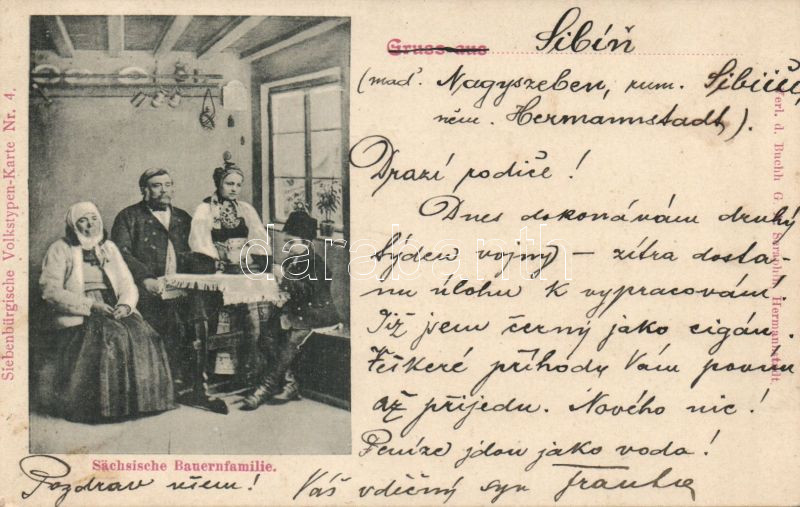 Gruss aus Sibíň
(maď. Nagyszeben, rum. Sibiiu,
něm. Hermannstadt).
Drazí rodiče!
Dnes dokonávám druhý
týden vojny – zítra dosta-
nu úlohu k vypracování.
Již jsem černý jako cigán.
Veškeré příhody Vám povím
až přijedu. Nového nic!
Peníze jdou jako voda!
Pozdrav všem! Váš vděčný syn
Sächsische Bauernfamilie.
Siebenbürgische Volkstypen-Karte Nr. 4.
Verl. d. Buchh. G. Seraphin, Hermannstadt.
darabanth